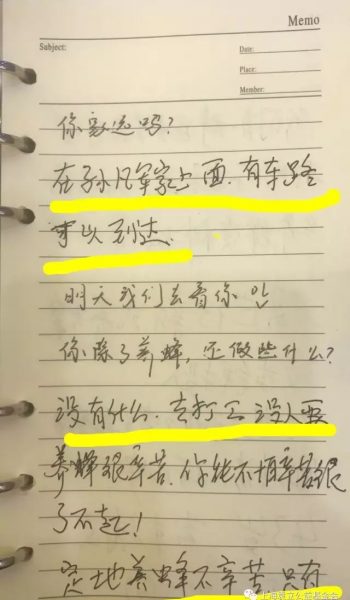 Memo
Subject:
Date:
Place:
Member:
你家远吗?
在孙凡军家上面.有车路
可以到达.
明天我们去看你吖
你除了养蜂,还做些什么?
没有什么.去打工没人要
养蜂很辛苦.你能不怕辛苦很
了不起!
定地养蜂不辛苦 只有